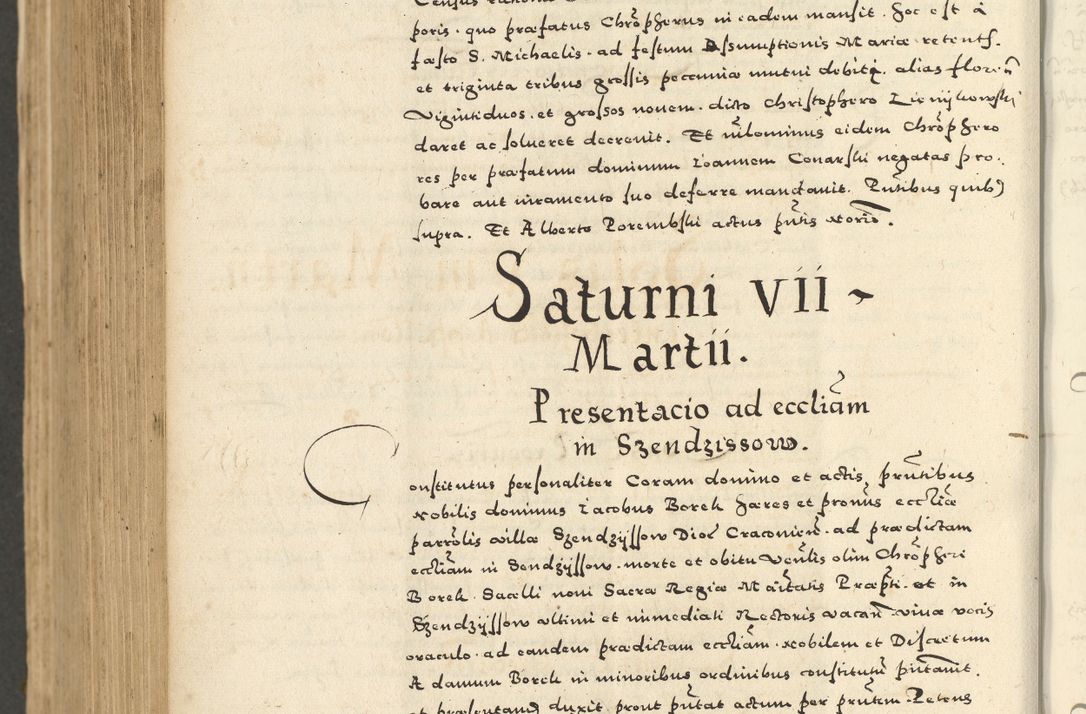 poris. quo præfatus Chrõpherus in eadem mansit. hoc est à
fæsto S. Michaelis. ad festum Assumptionis Mariæ retents.
et triginta tribus grossis pecuniæ mutui debitæ. alias floreñ
Viginti duos. et grossos nouem. dicto Christophero Lienijkowski
daret ac solueret decreuit. Et nihilominus eidem Chrõphero
res per præfatum dominum Ioannem Conarski negatas pro.
bare aut iuramento suo deferre mandauit. Pñtibus quibus
supra. Et Alberto Porembski actus pñtis notario.
Saturni VII
Martii.
Presentacio ad eccliãm
in Szendzissow.
Constitutus personaliter Coram domino et actis prñtibus
Nobilis dominus Iacobus Borek hæres et pronus eccliæ
parrolis villæ Szendzijssow Dioc Cracouień. ad prædictam
eccliãm in Sendzijssow. morte et obitu Veñlis olim Chrõpheri
Borek. Sacelli noui Sacræ Regiæ Maitatis Præpti. et in
Szendzijssow vltimi et immediati Rectoris vacañ viuæ vocis
oraculo. ad eandem prædictam eccliãm. nobilem et Discretum
Adamum Borek in minoribus ordinibus constitutũ pñtauit.
et præsentand duxit prout pñtat actum per prñtem. Petens